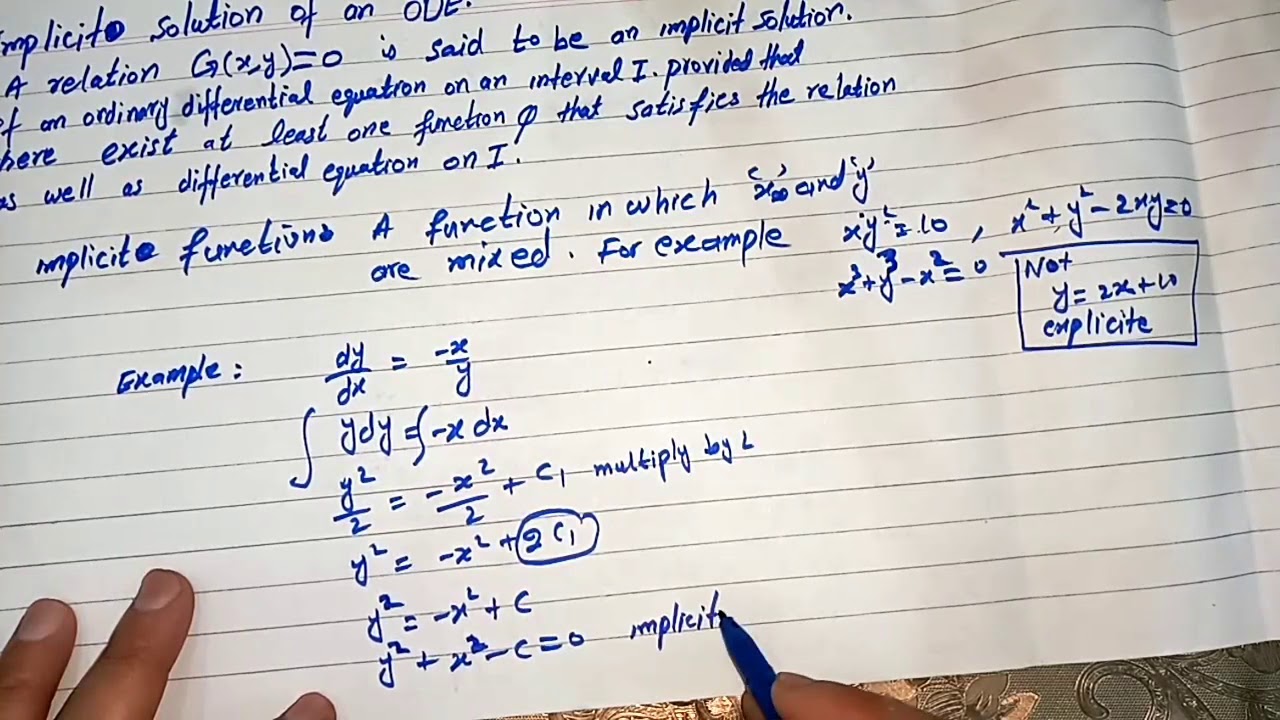 implicite solution of an ODE.
A relation G(x,y)=0 is said to be an implicit solution.
of an ordinary differential equation on an interval I. provided that
here exist at least one function φ that satisfies the relation
as well as differential equation on I.
mplicite functions A function in which 'x' and 'y'
are mixed. For example xy²=10, x²+y²-2xy=0
x³+y³-x²=0
Not
y=2x+10
explicite
Example: dy/dx = -x/y
∫ydy=∫-x dx
y²/2 = -x²/2 + C₁ multiply by 2
y² = -x²+2C₁
y² = -x²+C
y²+x²-C=0 implicit